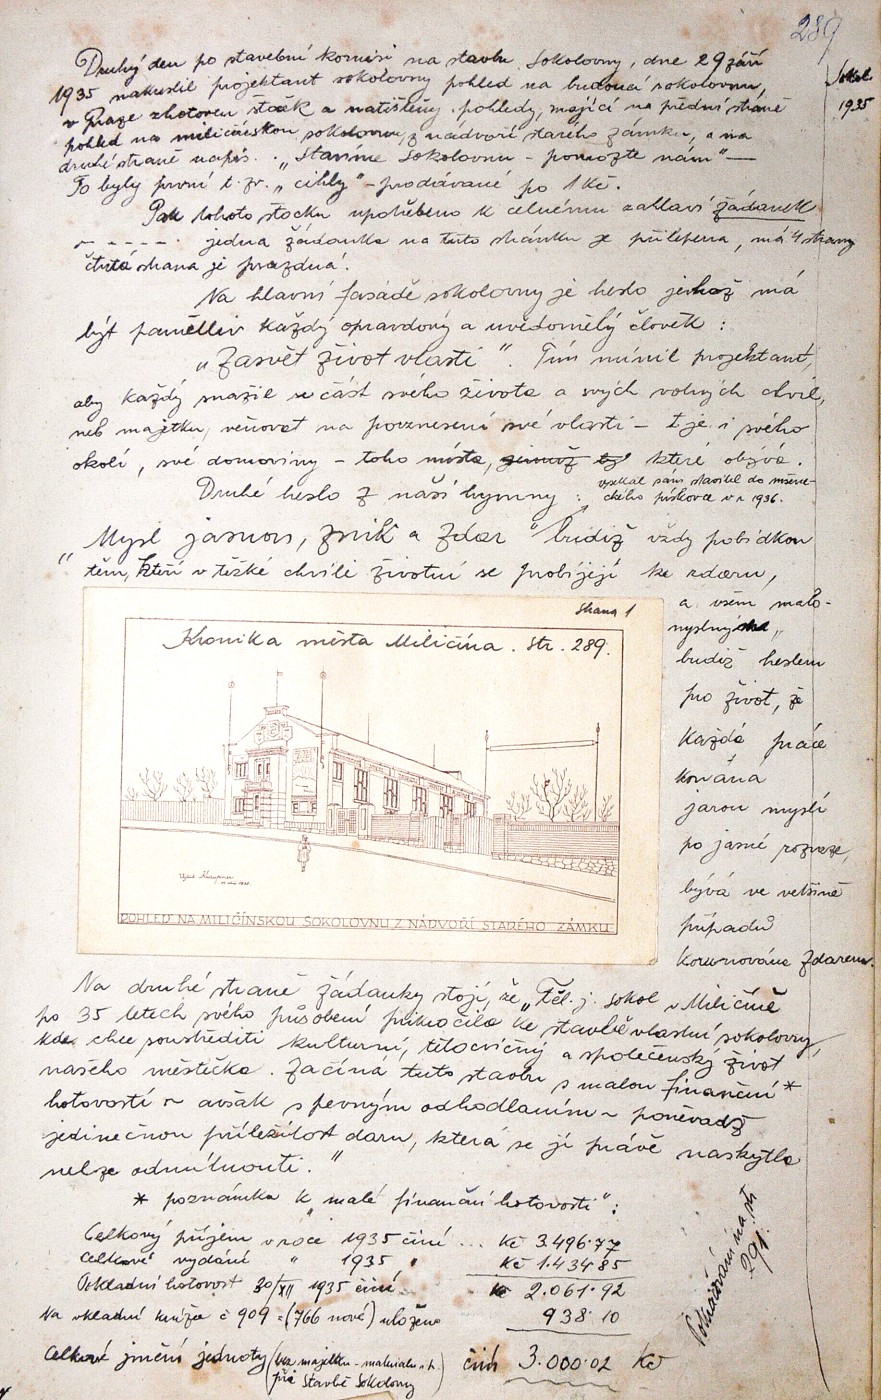 289
Druhý den po stavební komisi na stavbu Sokolovny, dne 29 září
Sokol
1935
1935 nakreslil projektant sokolovny pohled na budoucí sokolovnu,
v Praze zhotoven štoček a natištěny pohledy, mající na přední straně
pohled na miličínskou sokolovnu, z nádvoří starého zámku, a na
druhé straně nápis. „Stavíme Sokolovnu - pomozte nám" —
To byly první t. zv. „cihly" - prodávané po 1 Kč.
Pak tohoto štočku upotřebeno k čelnému záhlaví žádanek
jedna žádanka na tuto stránku je přilepena, má 4 strany
čtvrtá strana je prázdná.
Na hlavní fasádě sokolovny je heslo jehož má
být pamětliv každý opravdový a uvědomělý člověk :
„Zasvět život vlasti". Tím mínil projektant,
aby každý snažil se část svého života a svých volných chvil,
neb majetku, věnovat na povznesení své vlasti - t. je. i svého
okolí, své domoviny - toho místa, které obývá.
Druhé heslo z naší hymny :
vysekal sám stavitel do mšene-
ckého pískovce v r 1936.
„Mysl jasnou, znik a zdar" budiž vždy pobídkou
těm, kteří v těžké chvíli životní se probíjejí ke zdaru,
a všem malo-
myslným
budiž heslem
pro život, že
každá práce
konána
jarou myslí
po jasné rozvaze,
bývá ve většině
případů
korunována zdarem.
strana 1
Kronika města Miličína. Str. 289.
POHLED NA MILIČÍNSKOU SOKOLOVNU Z NÁDVOŘÍ STARÉHO ZÁMKU
Na druhé straně žádanky stojí, že „Těl. j. sokol v Miličíně
po 35 letech svého působení přikročila ke stavbě vlastní sokolovny,
kde chce soustřediti kulturní, tělocvičný a společenský život
našeho městečka. Začíná tuto stavbu s malou finanční *
hotovostí - avšak s pevným odhodláním - poněvadž
jedinečnou příležitost daru, která se jí právě naskytla
nelze odmítnouti."
* poznámka k „malé finanční hotovosti" :
Celkový příjem v roce 1935 činí ... Kč 3.496·77
Celkové vydání " 1935 " Kč 1.434·85
Pokladní hotovost 30/XII 1935 činí Kč 2.061·92
Na vkladní knížce č 909 = (766 nové) uloženo 938·10
Celkové jmění jednoty (bez majetku - materialu a. t.
při stavbě Sokolovny) činí 3.000·02 Kč
Pokračování na str
291.